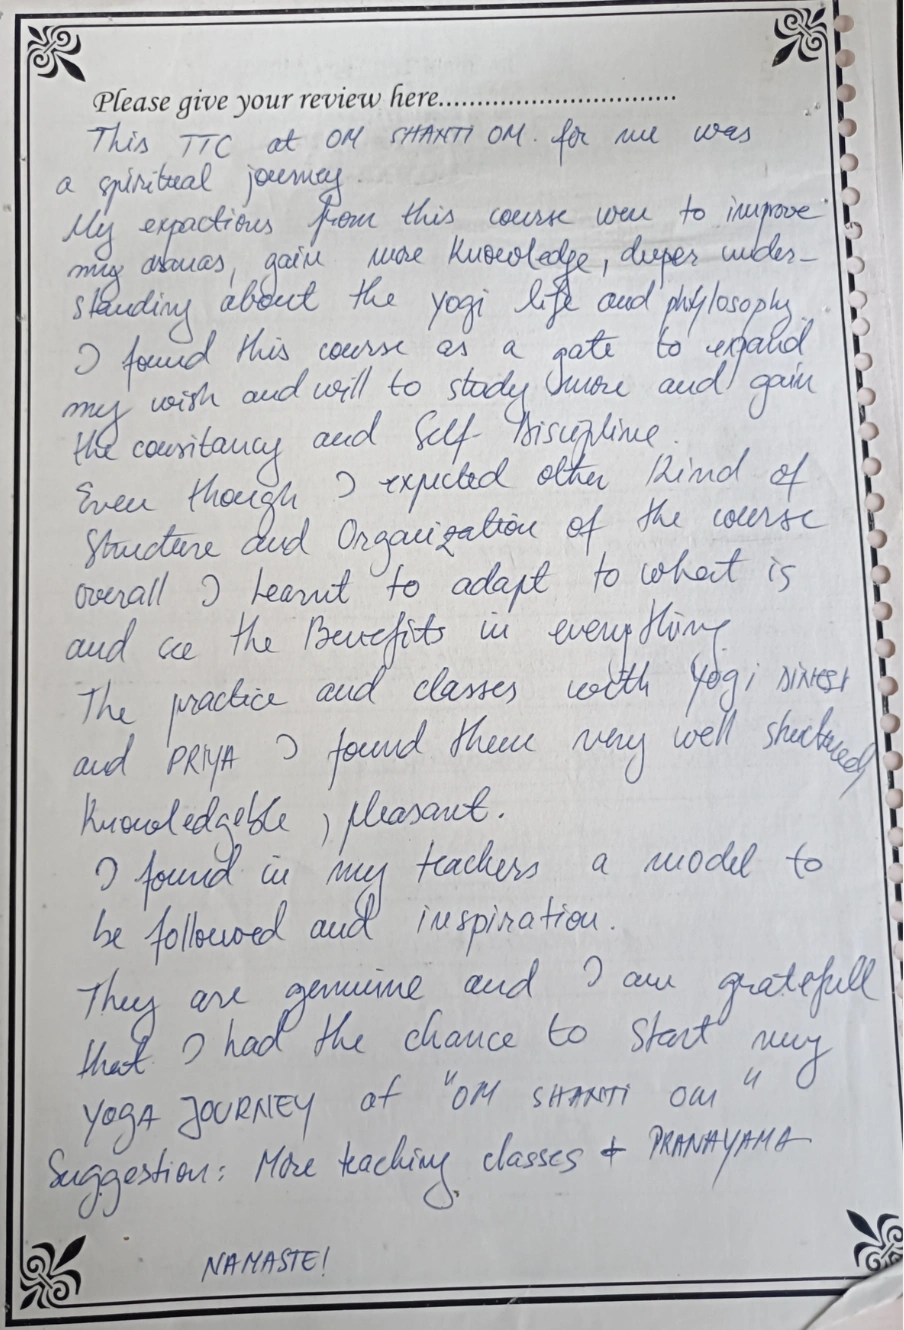 Please give your review here..............................
This TTC at OM SHANTI OM. for me was
a spiritual journey.
My expactions from this course were to improve
my asanas, gain more knowledge, deeper under-
standing about the yogi life and phylosophy.
I found this course as a gate to expand
my wish and will to study more and gain
the consitancy and Self-Discipline.
Even though I expected other kind of
Structure and Organization of the course
overall I learnt to adapt to what is
and see the Benefits in everything
The practice and classes with Yogi DINESH
and PRIYA I found them very well structured,
knowledgeble, pleasant.
I found in my teachers a model to
be followed and inspiration.
They are genuine and I am gratefull
that I had the chance to Start my
YOGA JOURNEY at "OM SHANTI OM"
Suggestion: More teaching classes + PRANAYAMA
NAMASTE!